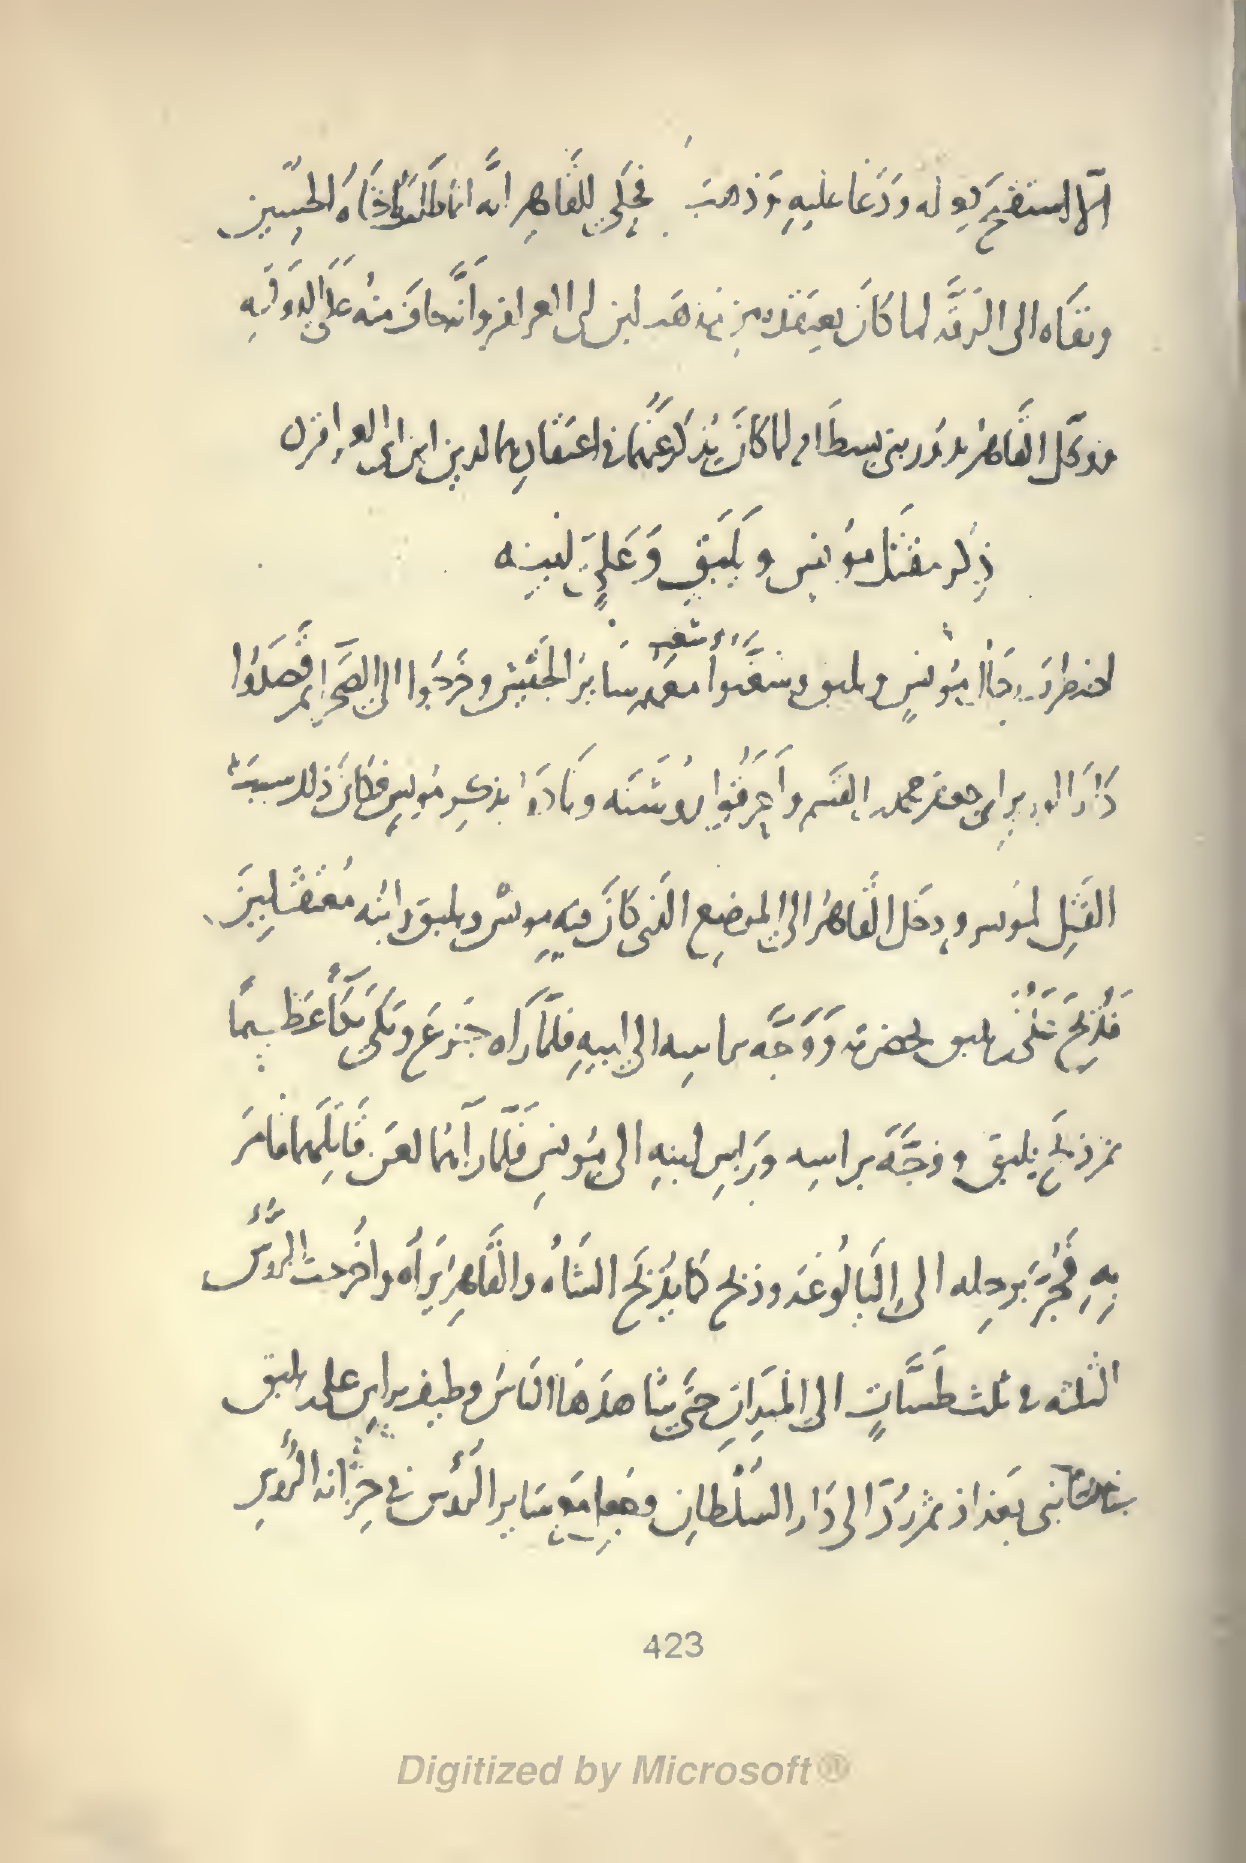 الا استقبح قوله ودعا عليه وذهب فحكى للقاهر انه انما اخاه الحسين
ونفاه الى الرقة لما كان يعتقده من مذهب ابن ابى العزاقر وانه خاف منه على الدولة
فوكل القاهر بدور بنى بسطام لما كان يذكر عنهما فى اعتقادهما لدين ابن ابى العزاقر
ذكر مقتل مونس وبليق وعلى ابنه
اضطرب رجال مونس وبليق وشغبوا شغب معهم ساير الجيش وخرجوا الى الصحرا ثم قصدوا
دار الوزير ابى جعفر محمد بن القسم واحرقوا روشنه ونادوا بذكر مونس فكان ذلك سبب
القتل لمونس ودخل القاهر الى الموضع الذى كان فيه مونس وبليق وابنه معتقلين
فذبح على بن بليق بحضرته ووجه براسه الى ابيه فلما راه جزع وبكى بكاء عظيما
ثم ذبح بليق ووجه براسه وراس ابنه الى مونس فلما راهما لعن قاتلهما فامر
به فجر برجله الى البالوعه وذبح كما يذبح الشاه والقاهر يراه واخرجت الروس
الثلثه فى ثلث طسات الى الميدان حتى شاهدها الناس وطيف براس على بن بليق
جانبى بغداذ ثم رد الى دار السلطان وجعل مع ساير الروس فى خزانه الروس
423
Digitized by Microsoft®